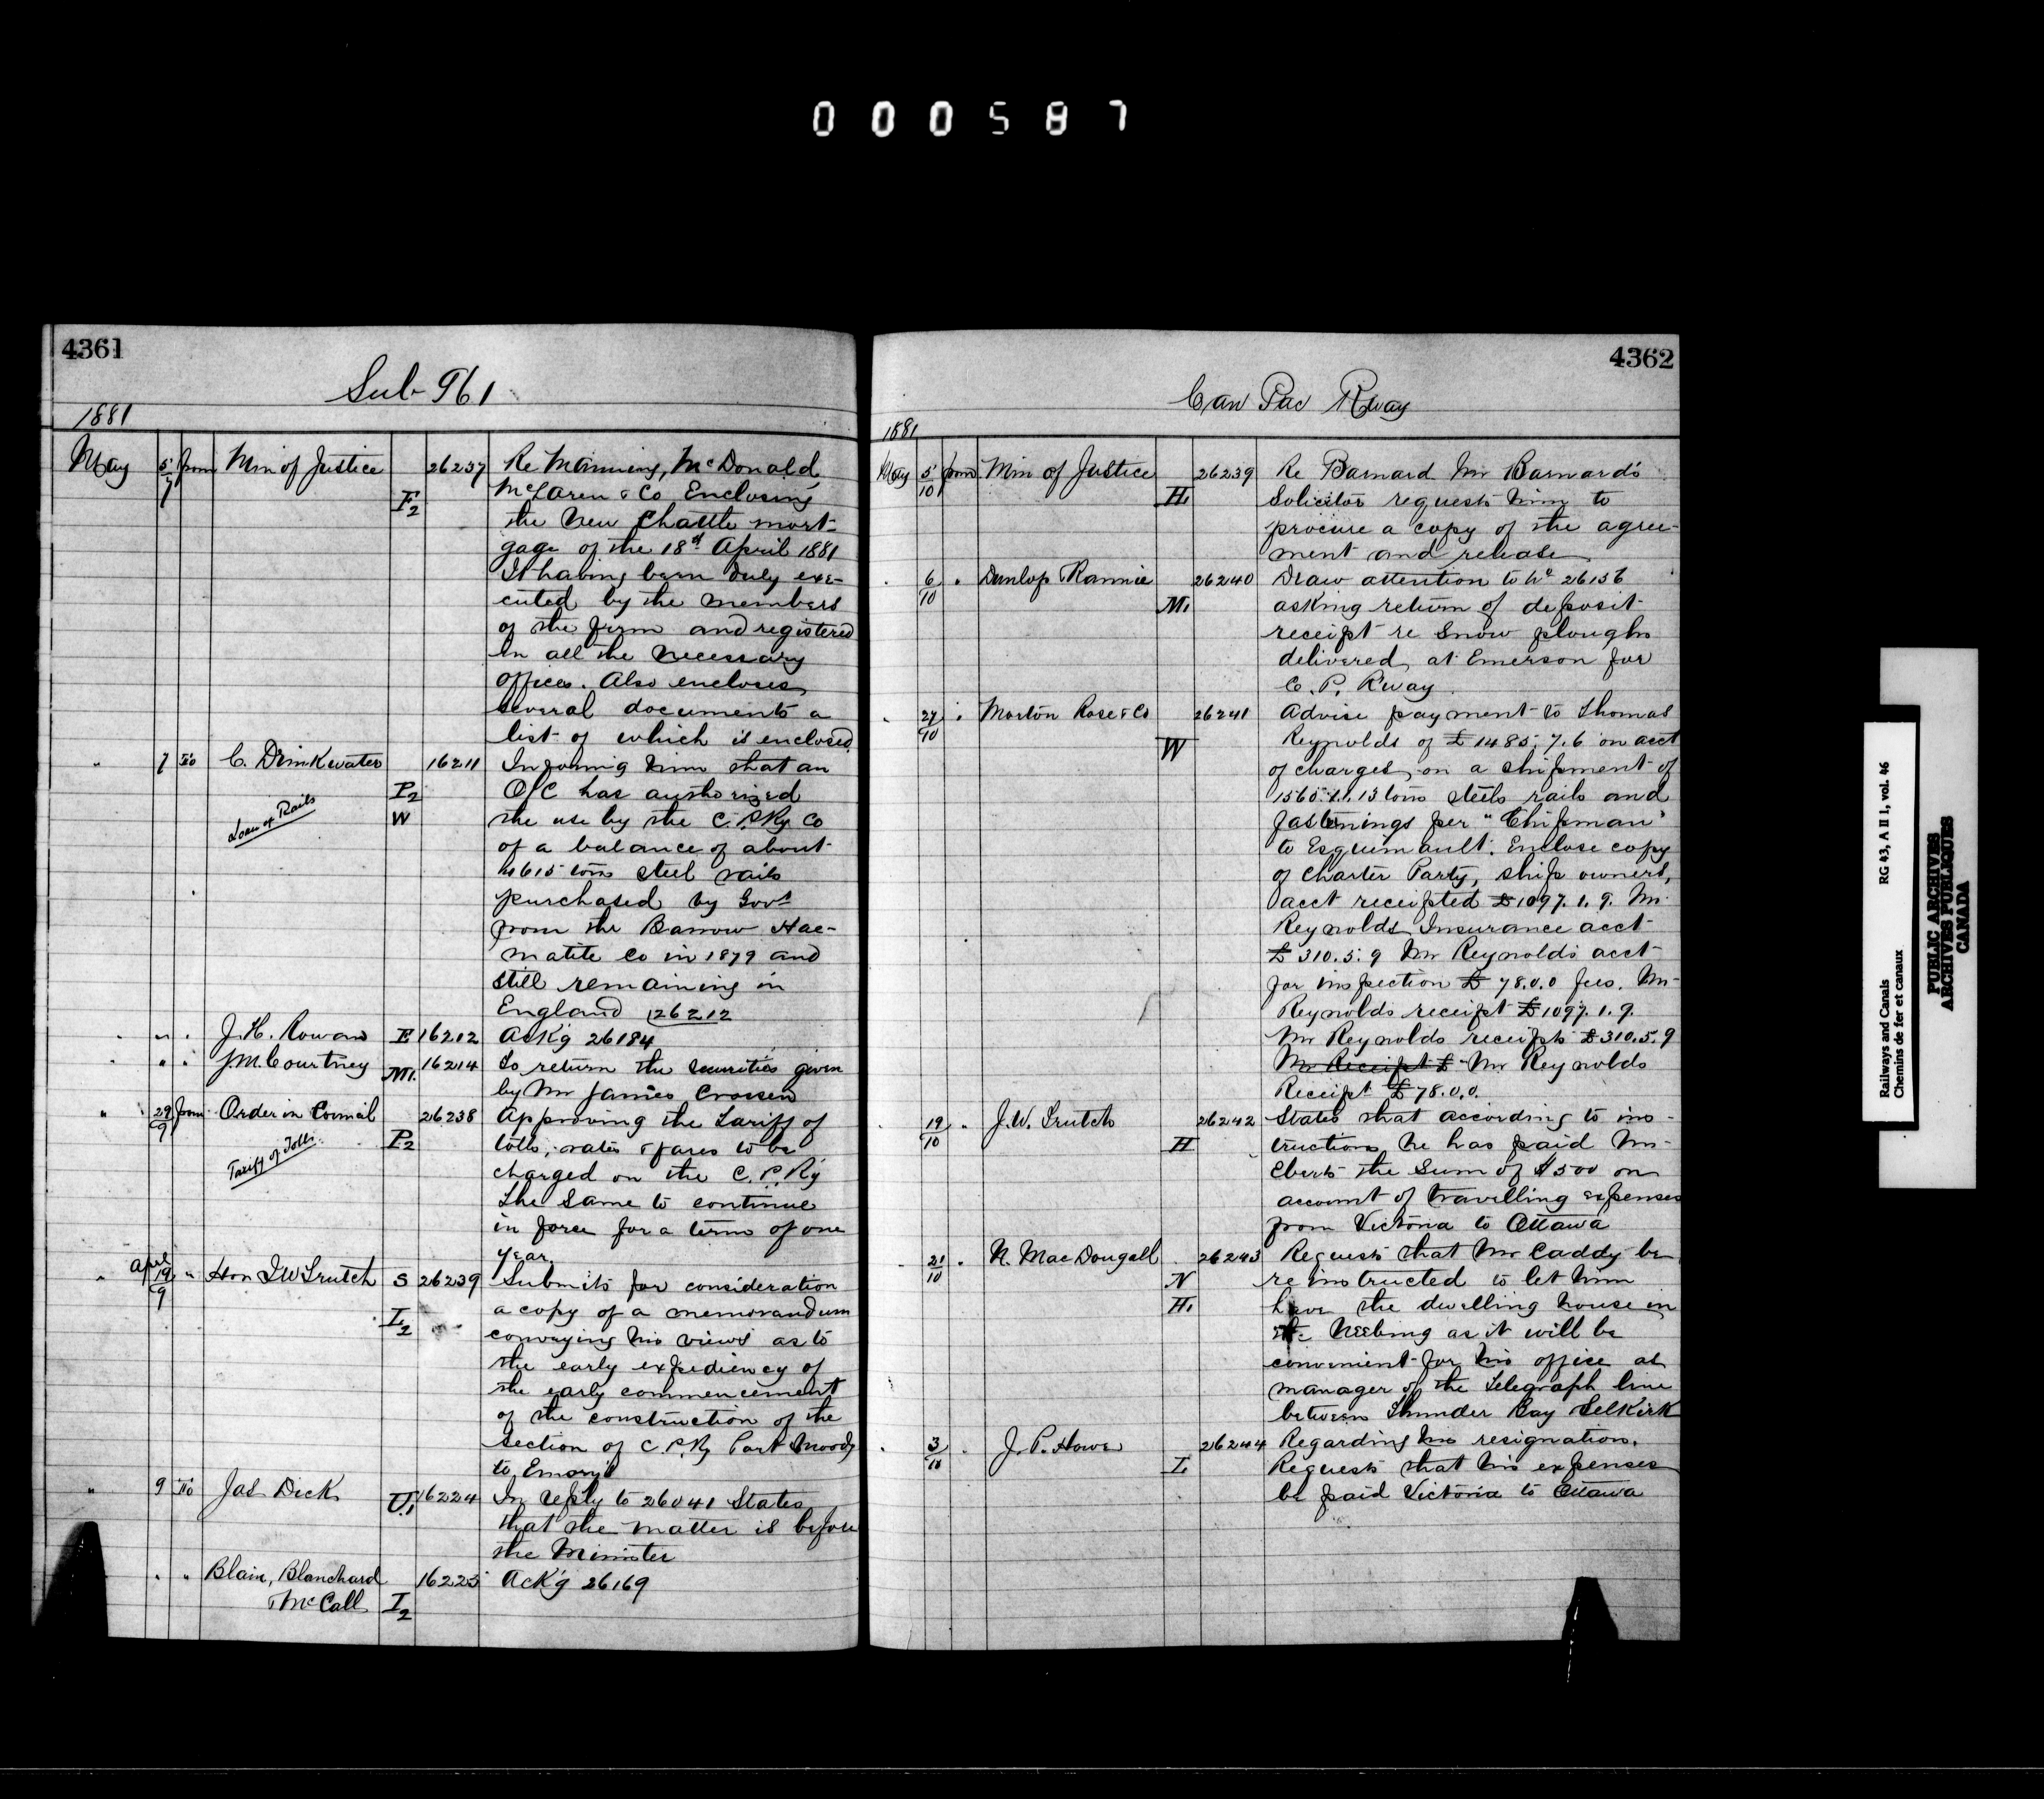 000587
4361
Sub 961
1881
May 5/7 from Min of Justice F2 26237 Re Manning, McDonald,
McLaren & Co Enclosing
the new Chattle mort-
gage of the 18th April 1881
It having been duly exe-
cuted by the members
of the firm and registered
in all the necessary
offices. Also encloses
several documents a
list of which is enclosed
" 7 To C. Drinkwater 16211 Informing him that an
P2 O/C has authorized
Loan of Rails W the use by the C.P.Ry Co
of a balance of about
615 tons steel rails
purchased by Govt
from the Barrow Hae-
matite Co in 1879 and
still remaining in
England 26212
" " " J.H. Rowan E 16212 Ack'g 26184
" " " J.M. Courtney M1. 16214 To return the securities given
by Mr James Crossen
" 29/9 from Order in Council 26238 Approving the Tariff of
P2 tolls, rates & fares to be
Tariff of Tolls charged on the C.P.Ry
The same to continue
in force for a term of one
year
" April 19/9 " Hon J W Trutch S 26239 Submits for consideration
I2 a copy of a memorandum
conveying his views as to
the early expediency of
the early commencement
of the construction of the
section of C.P.Ry Port Moody
to Emory's
" 9 To Jas Dick U1 16224 In reply to 26041 States
that the matter is before
the Minister
" " Blain, Blanchard 16225 Ack'g 26169
& McCall I2
4362
Can Pac Rway
1881
May 5/10 from Min of Justice 26239 Re Barnard Mr Barnard's
H1 Solicitor requests him to
procure a copy of the agree-
ment and release
" 6/10 " Dunlop & Rannie 26240 Draw attention to No 26136
M1 asking return of deposit
receipt re snow ploughs
delivered at Emerson for
C. P. R'way
" 27/10 " Morton Rose & Co 26241 Advise payment to Thomas
W Reynolds of £1485.7.6 on acct
of charges on a shipment of
1560.1.1.13 tons steels rails and
fastenings per "Chipman"
to Esquimault. Enclose copy
of Charter Party, ship owners,
acct receipted £1097.1.9. Mr
Reynolds Insurance acct
£310.5.9 Mr Reynolds acct
for inspection £78.0.0 fees. Mr
Reynolds receipt £1097.1.9.
Mr Reynolds receipts £310.5.9
Mr Receipt £ Mr Reynolds
Receipt £78.0.0.
" 19/10 " J.W. Trutch 26242 States that according to ins-
H tructions he has paid Mr
Eberts the sum of $500 on
account of travelling expenses
from Victoria to Ottawa
" 21/10 " N. MacDougall 26243 Requests that Mr Caddy be
N re instructed to let him
H1 have the dwelling house in
Neebing as it will be
convenient for his office as
manager of the Telegraph line
between Thunder Bay Selkirk
" 3/10 " J.P. Howe 26244 Regarding his resignation.
I. Requests that his expenses
be paid Victoria to Ottawa
Railways and Canals RG 43, A II 1, vol. 46
Chemins de fer et canaux
PUBLIC ARCHIVES
ARCHIVES PUBLIQUES
CANADA